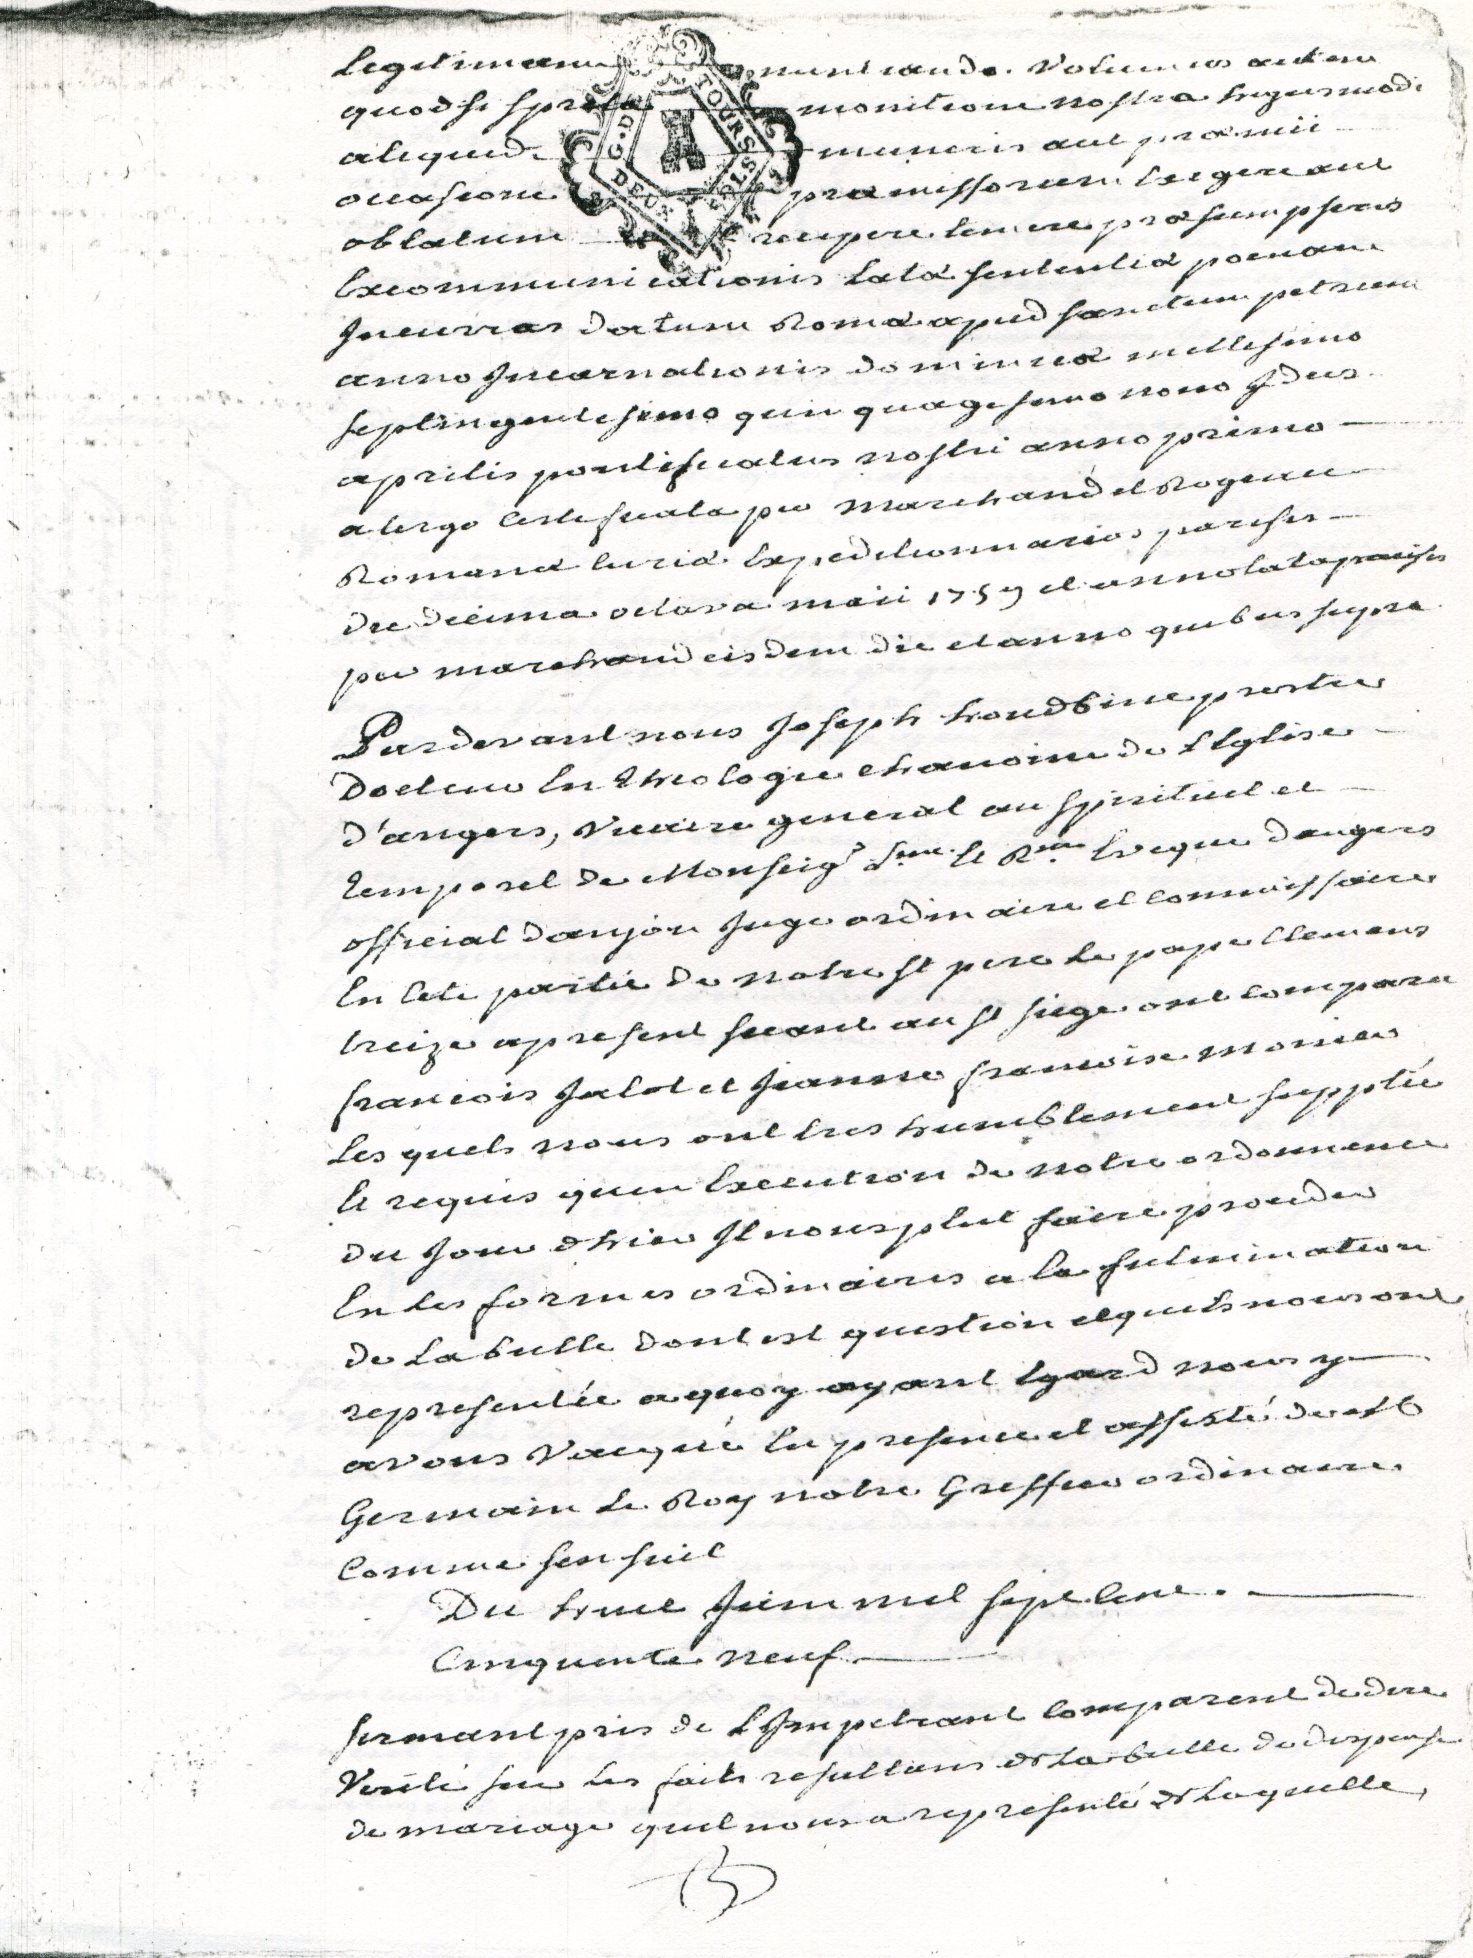 legitimam nuntiando. volumus autem
quod si spreta monitione nostra hujusmodi
aliquid muneris aut præmii
occasione præmissorum exigere aut
oblatum recipere temere præsumpseris
Excommunicationis latæ sententiæ poenam
Incurras datum Romæ apud sanctum petrum
anno Incarnationis dominicæ millesimo
septingentesimo quinquagesimo nono Idus
aprilis pontificatus nostri anno primo
a tergo Certificata per marchand et
Romanæ Curiæ Expeditionnarios parisis
die decima octava maii 1759 et annotata
per marchand eisdem die et anno quibus supra
Pardevant nous Joseph houdbine prestre
Docteur En Theologie chanoine de L'Eglise
d'angers, Vicaire general au spirituel et
temporel de Monseigr Lme. et Rme Eveque dangers
official danjou Juge ordinaire et Commissaire
En Cete partie de notre st pere Le pape Clemens
treize apresent seant au st siege ont Comparu
francois Jalot et Jeanne francoise
Les quels nous ont tres humblement supplié
Et requis quen Execution de notre ordonnence
du Jour dhier Il nous plut faire proceder
En Les formes ordinaires a la fulmination
de La bulle dont est question et quils nous ont
representée a quoy ayant Egard nous y
avons Vacqué En presence et assisté de
Germain Le Roy notre Greffier ordinaire
Comme sen suit
Du huit Juin mil sept Cent
Cinquante neuf
serment pris de L'Impetrant Comparent de dire
Verité sur Les faits resultans de La bulle de dispense
de mariage quil nous a representé et Laquelle
G. DE TOURS
DEUX SOLS